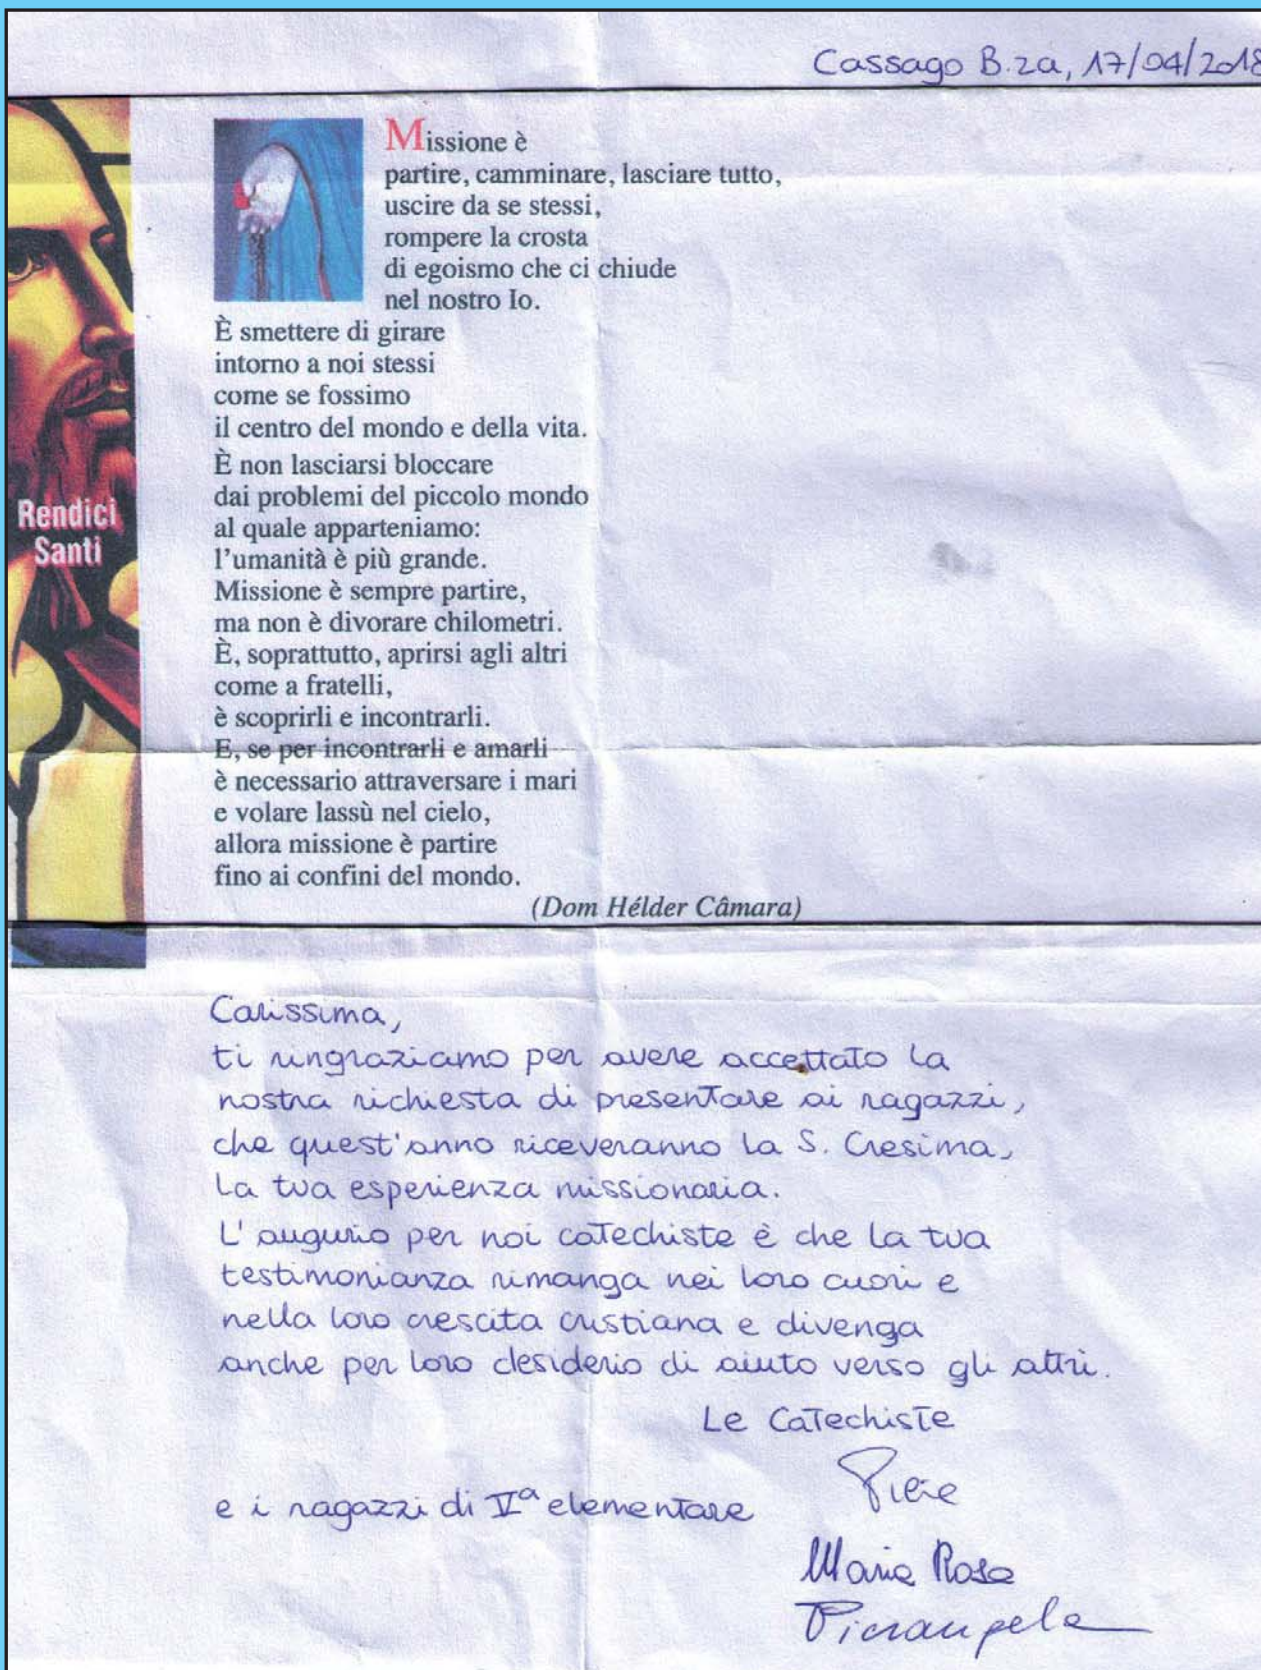 Cassago B.za, 17/04/2018
Missione è
partire, camminare, lasciare tutto,
uscire da se stessi,
rompere la crosta
di egoismo che ci chiude
nel nostro Io.
È smettere di girare
intorno a noi stessi
come se fossimo
il centro del mondo e della vita.
È non lasciarsi bloccare
dai problemi del piccolo mondo
al quale apparteniamo:
l'umanità è più grande.
Missione è sempre partire,
ma non è divorare chilometri.
È, soprattutto, aprirsi agli altri
come a fratelli,
è scoprirli e incontrarli.
E, se per incontrarli e amarli
è necessario attraversare i mari
e volare lassù nel cielo,
allora missione è partire
fino ai confini del mondo.
(Dom Hélder Câmara)
Rendici
Santi
Carissima,
ti ringraziamo per avere accettato la
nostra richiesta di presentare ai ragazzi,
che quest'anno riceveranno la S. Cresima,
la tua esperienza missionaria.
L'augurio per noi catechiste è che la tua
testimonianza rimanga nei loro cuori e
nella loro crescita cristiana e divenga
anche per loro desiderio di aiuto verso gli altri.
Le Catechiste
e i ragazzi di Vª elementare
Maria Rosa
Pierangela